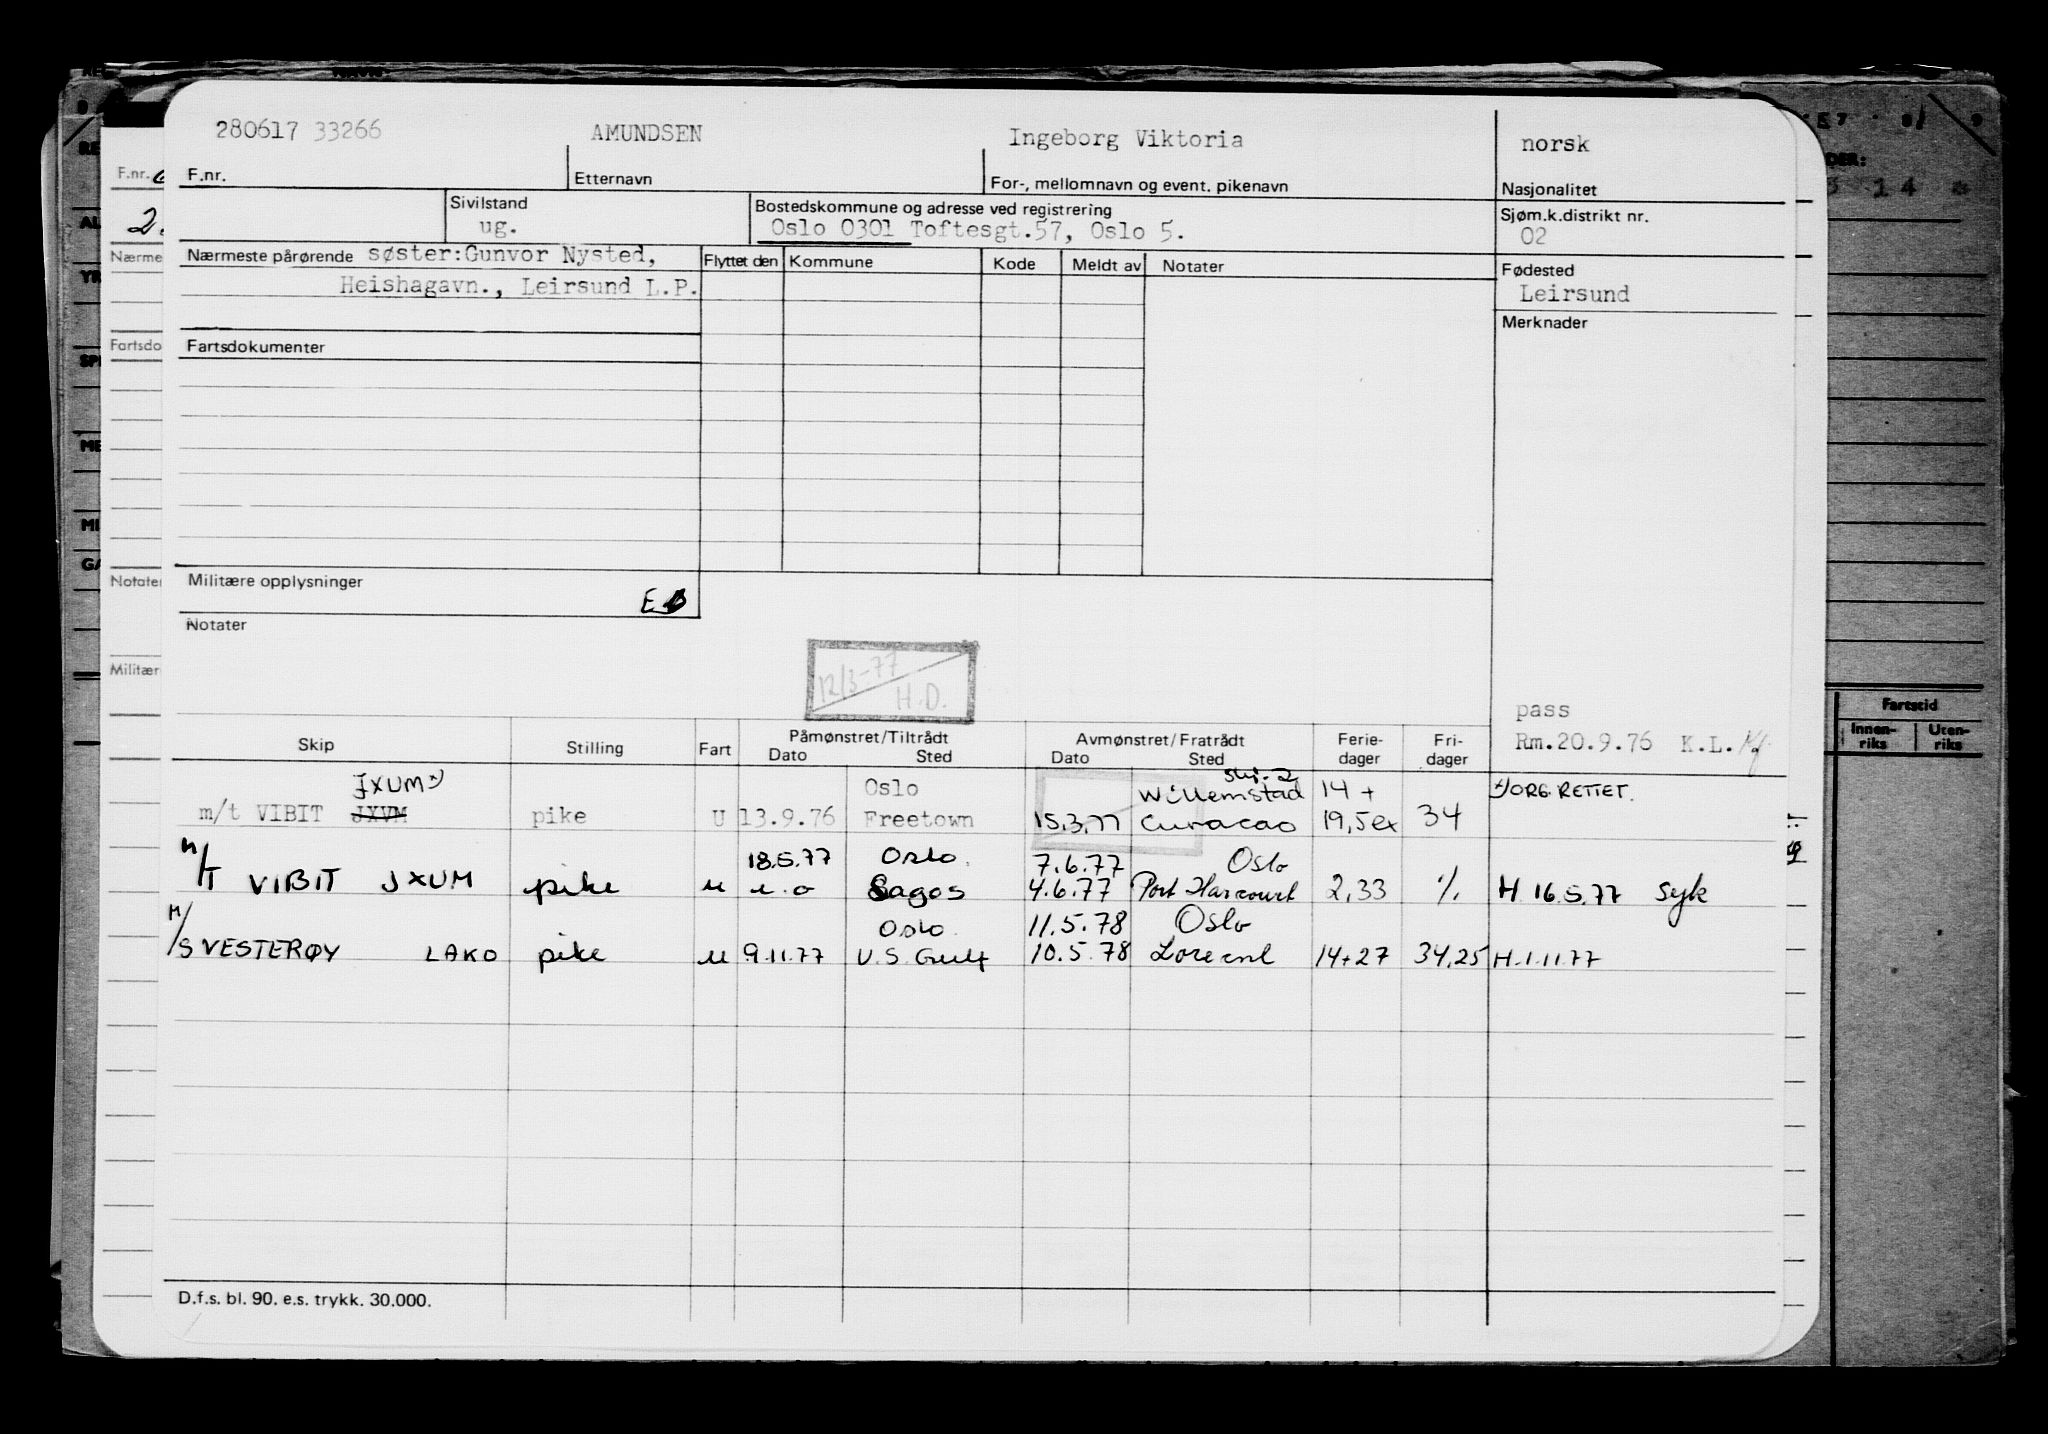 280617 33266 AMUNDSEN Ingeborg Viktoria norsk
F.nr. Etternavn For-, mellomnavn og event. pikenavn Nasjonalitet
Sivilstand Bostedskommune og adresse ved registrering Sjøm.k.distrikt nr.
ug. Oslo 0301 Toftesgt.57, Oslo 5. 02
Nærmeste pårørende søster:Gunvor Nysted, Flyttet den Kommune Kode Meldt av Notater Fødested
Heishagavn., Leirsund L.P. Leirsund
Merknader
Fartsdokumenter
Militære opplysninger
Notater
12/3-77
H.D.
pass
Rm.20.9.76 K.L.
Skip Stilling Fart Påmønstret/Tiltrådt Avmønstret/Fratrådt Ferie- Fri-
Dato Sted Dato Sted dager dager
JXUM x) Oslo Willemstad 14 + x) ORG. RETTET.
m/t VIBIT JXVM pike U 13.9.76 Freetown 15.3.77 Curacao 19,5ex 34
18.5.77 Oslo. 7.6.77 Oslo
M/T VIBIT JXUM pike u u.o Lagos 4.6.77 Port Harcourt 2,33 % H 16.5.77 syk
Oslo. 11.5.78 Oslo
M/S VESTERØY LAKO pike u 9.11.77 U.S. Gulf 10.5.78 14+27 34,25 H.1.11.77
D.f.s. bl. 90. e.s. trykk. 30.000.
F.nr.
Nærme
Fartsdo
Notater
Militær
Fartstid
Innen-
riks
Uten-
riks